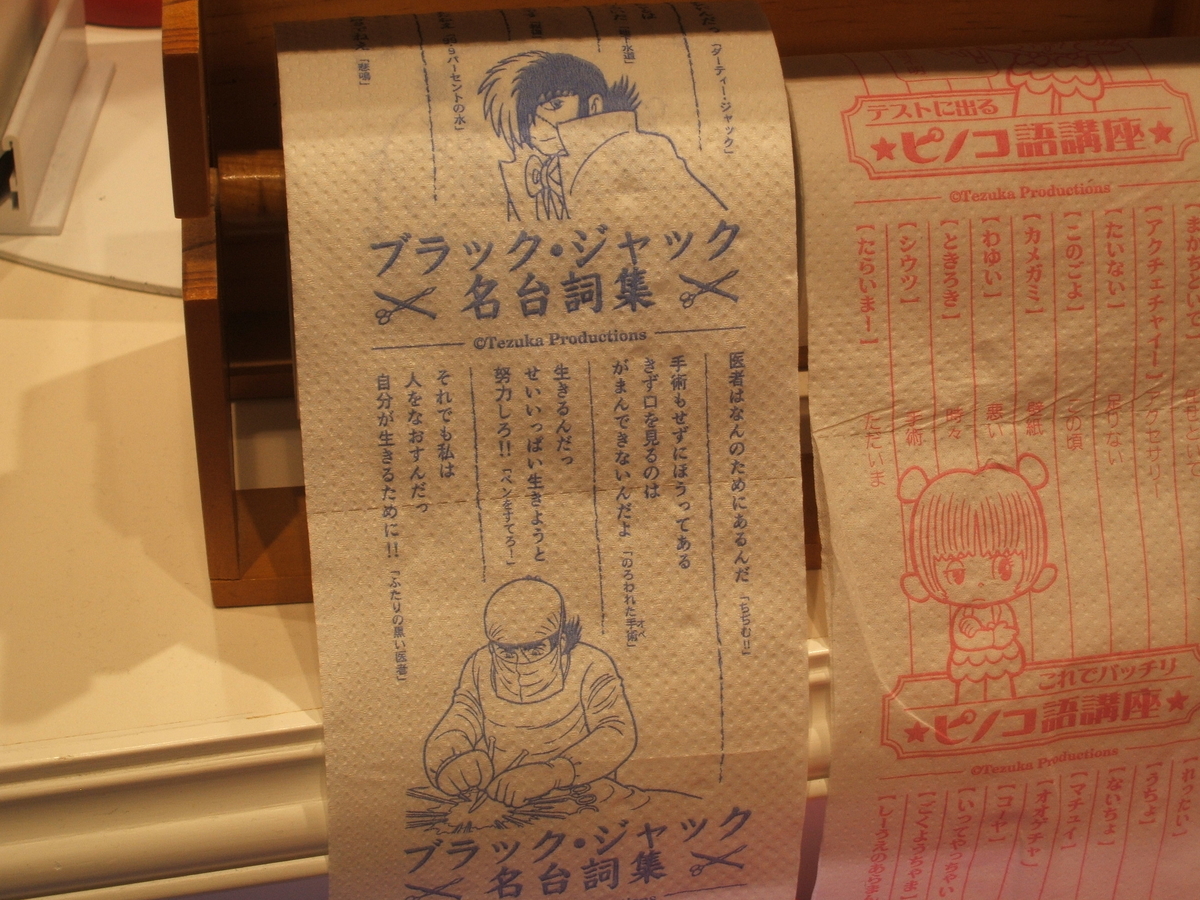 「ダーティー・ジャック」
パーセントの水」
「悲鳴」
ブラック・ジャック
名台詞集
©Tezuka Productions
医者はなんのためにあるんだ 「ちぢむ!!」
手術もせずにほうってある
きず口を見るのは
がまんできないんだよ 「のろわれた手術」
オペ
生きるんだっ
せいいっぱい生きようと
努力しろ!! 「ペンをすてろ!」
それでも私は
人をなおすんだっ
自分が生きるために!! 「ふたりの黒い医者」
ブラック・ジャック
名台詞集
テストに出る
★ピノコ語講座★
©Tezuka Productions
【アクチェチャイー】 アクセサリー
【たいない】 足りない
【このごよ】 この頃
【カメガミ】 壁紙
【わゆい】 悪い
【ときろき】 時々
【シウツ】 手術
【たらいま!】 ただいま
これでバッチリ
★ピノコ語講座★
©Tezuka Productions
【うちょ】
【ないちょ】
【マチュイ】
【いってやっちゃい
【ごくようちゃま】
【しーうえのあらまん